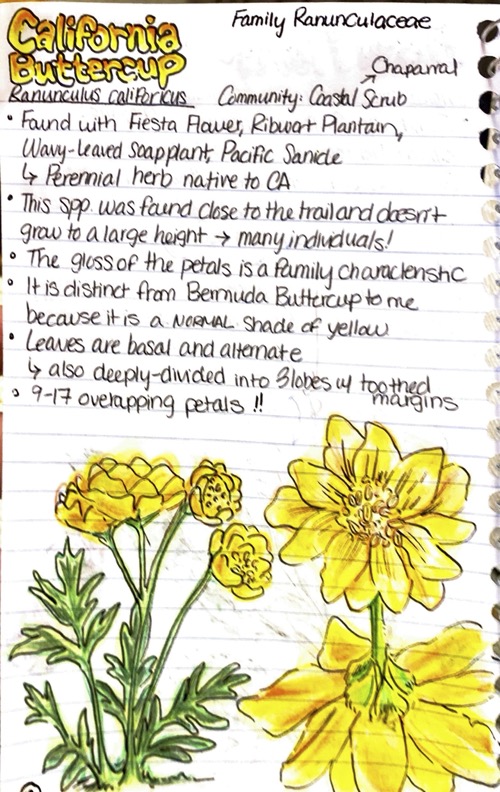 Family Ranunculaceae
California
Buttercup
Chaparral
Ranunculus californicus Community: Coastal Scrub
• Found with Fiesta Flower, Ribwort Plantain,
Wavy-leaved Soapplant, Pacific Sanicle
↳ Perennial herb native to CA
• This spp. was found close to the trail and doesn't
grow to a large height → many individuals!
• The gloss of the petals is a family characteristic
• It is distinct from Bermuda Buttercup to me
because it is a NORMAL shade of yellow
• Leaves are basal and alternate
↳ also deeply-divided into 3 lobes w/ toothed
margins
• 9-17 overlapping petals !!